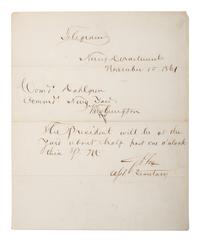 Telegram
Navy Department
November 15 1861
Com'r Dahlgren
Comm'g Navy Yard
Washington
The President will be at the
Yard about half past one o'clock
this P. M.
G V Fox
Ast Secretary